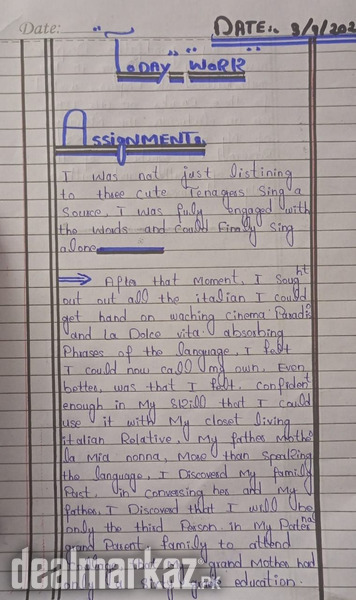 Date:
DATE:. 3/9/202
"TODAY" "WORK"
ASSIGNMENT:.
I was not just listining
to three cute Tenagers Sing a
Source, I was fuly engaged with
the words and Could Finally Sing
alone
After that Moment, I Sought
out out all the italian I Could
get hand on waching cinema Paradis
and La Dolce vita. absorbing
Phrases of the language, I felt
I Could now call my own. Even
better, was that I felt. Confident
enough in My Skill that I Could
use it with My closet living
italian Relative, My father Mothe
la Mia nonna, More than Speaking
the language, I Discoverd My family
Past, in conversing her and My
father, I Discoverd that I will be
only the third Person in My Paternal
grand Parent family to attend
grand Mother had
education.
dealmarkaz.pk